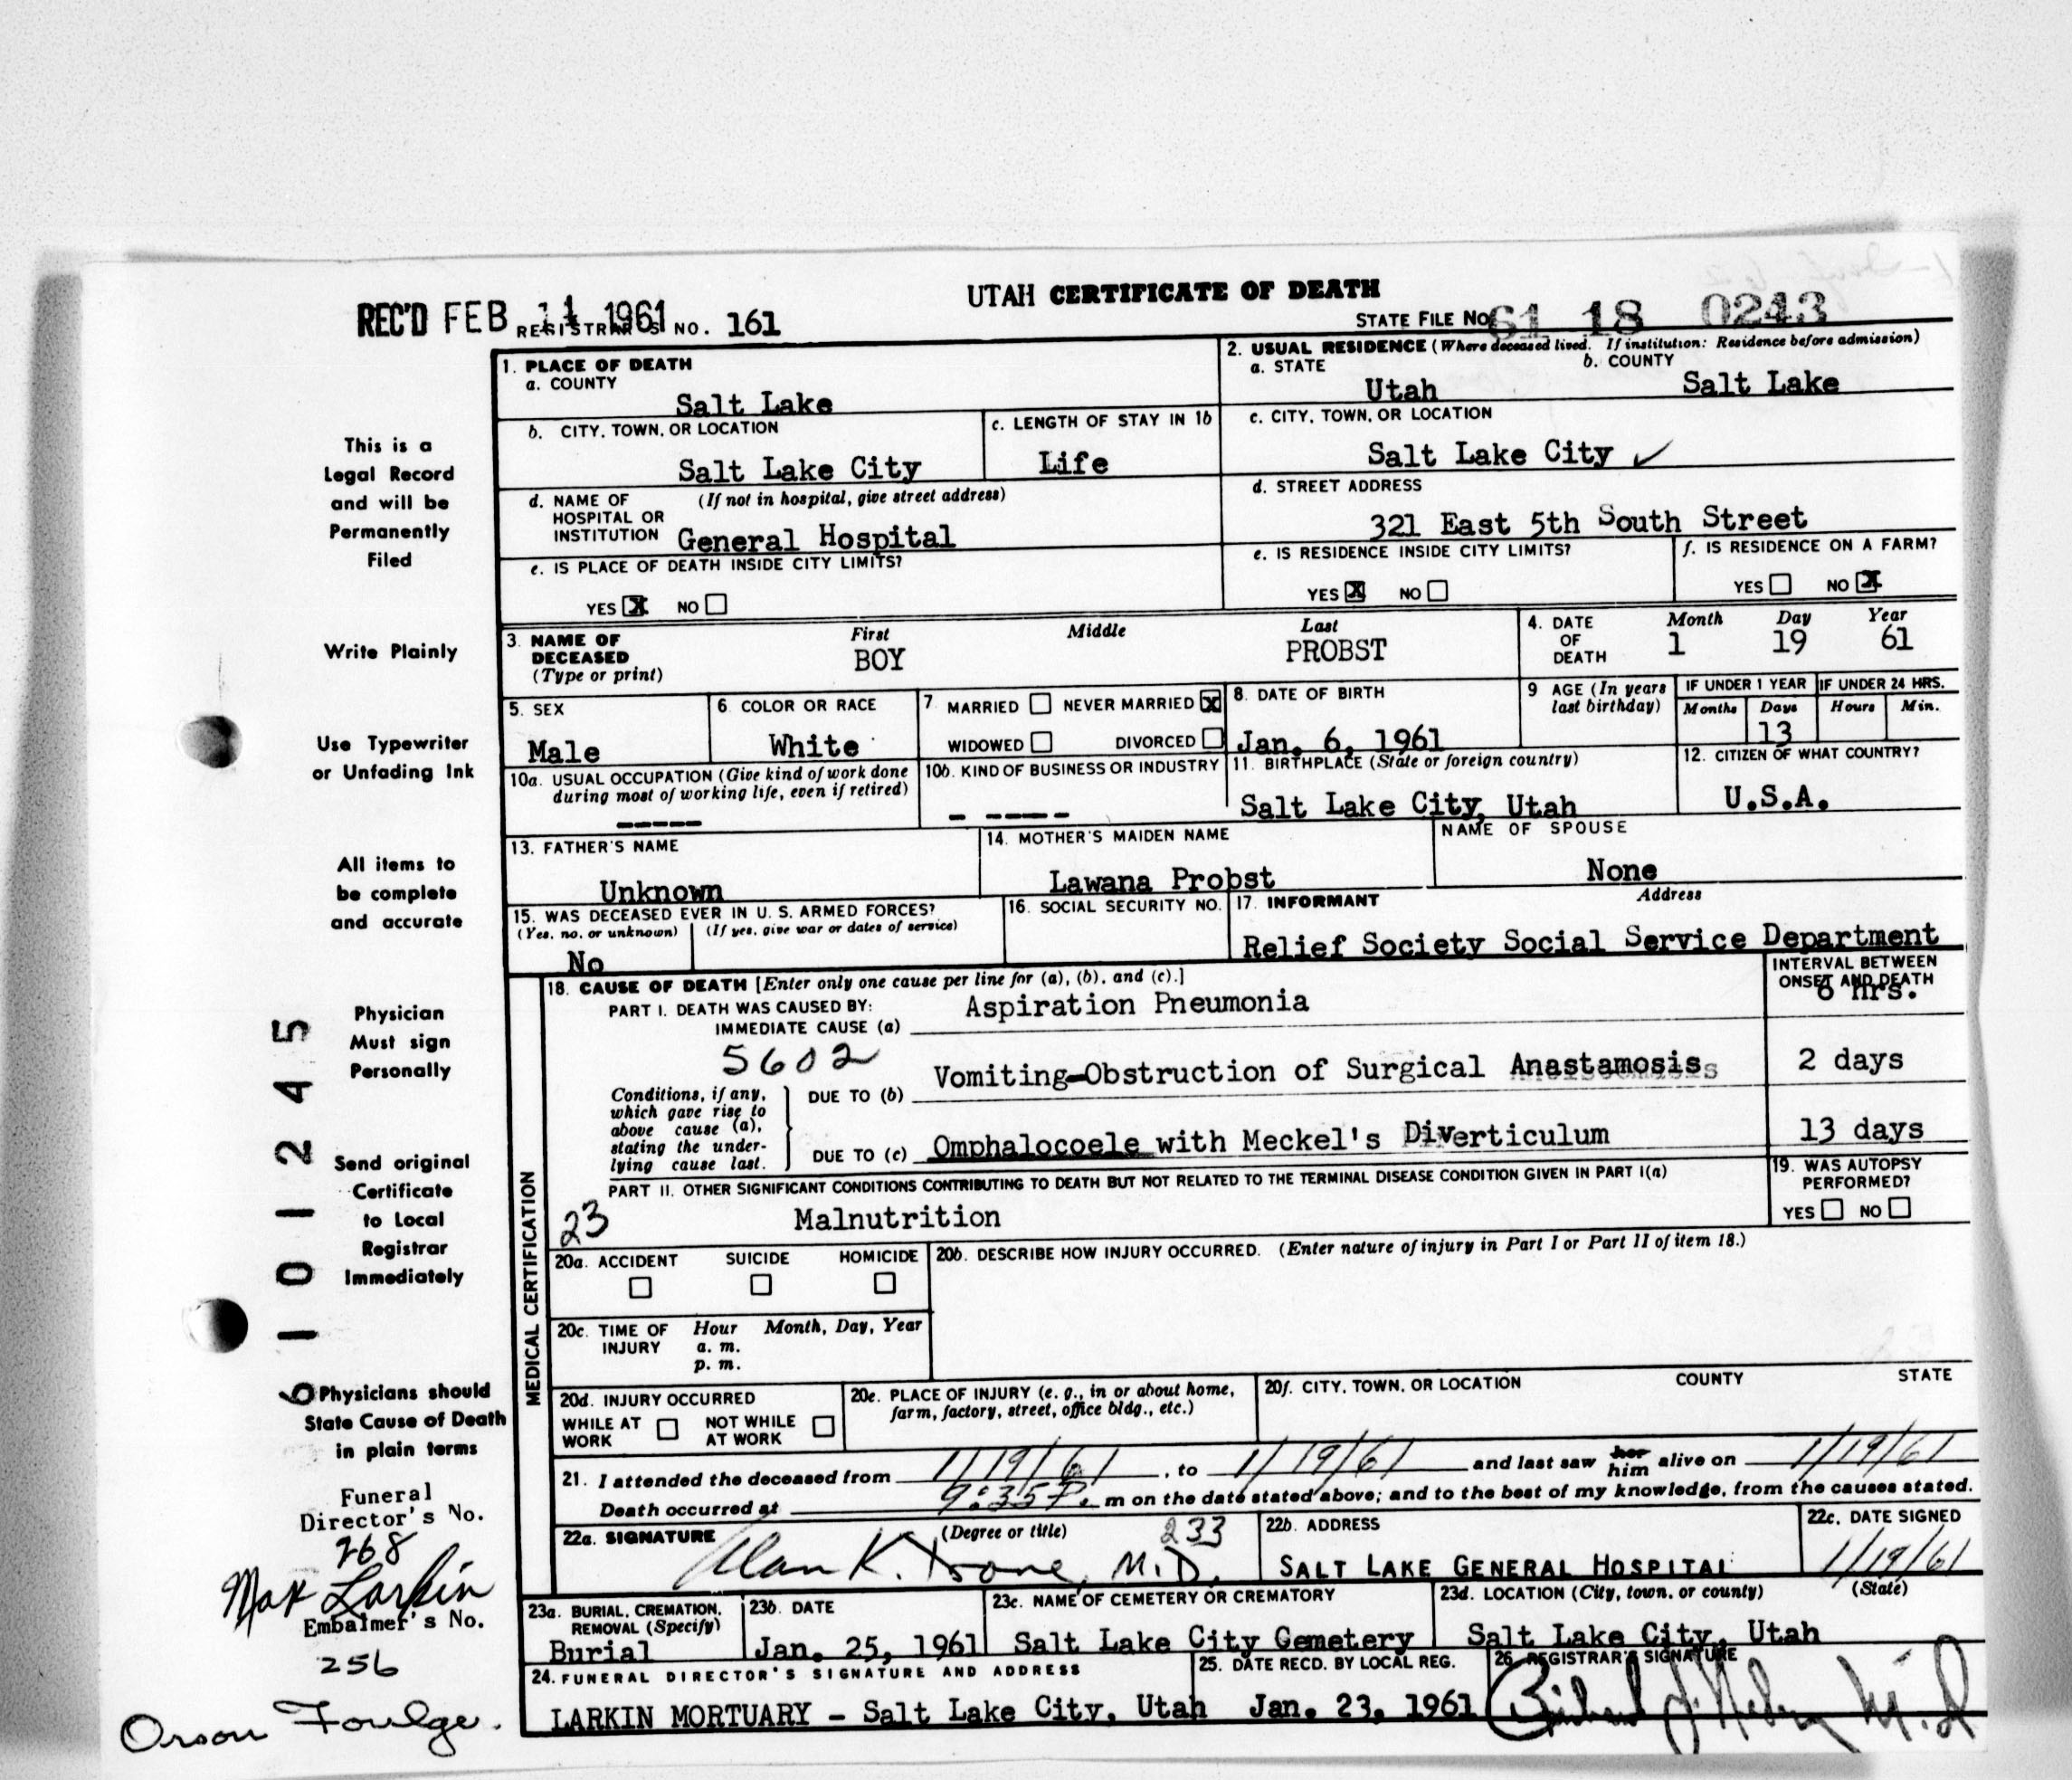 UTAH CERTIFICATE OF DEATH
REC'D FEB 1961
REGISTRAR'S NO. 161
STATE FILE NO. 61 18 0243
1. PLACE OF DEATH
a. COUNTY
Salt Lake
2. USUAL RESIDENCE (Where deceased lived. If institution: Residence before admission)
a. STATE
Utah
b. COUNTY
Salt Lake
b. CITY, TOWN, OR LOCATION
Salt Lake City
c. LENGTH OF STAY IN 1b
Life
c. CITY, TOWN, OR LOCATION
Salt Lake City ✓
d. NAME OF HOSPITAL OR INSTITUTION
(If not in hospital, give street address)
General Hospital
d. STREET ADDRESS
321 East 5th South Street
e. IS PLACE OF DEATH INSIDE CITY LIMITS?
YES X NO
e. IS RESIDENCE INSIDE CITY LIMITS?
YES X NO
f. IS RESIDENCE ON A FARM?
YES NO X
3. NAME OF DECEASED
(Type or print)
First Middle Last
BOY PROBST
4. DATE OF DEATH
Month Day Year
1 19 61
5. SEX
Male
6. COLOR OR RACE
White
7. MARRIED NEVER MARRIED X
WIDOWED DIVORCED
8. DATE OF BIRTH
Jan. 6, 1961
9 AGE (In years last birthday)
IF UNDER 1 YEAR
Months Days
13
IF UNDER 24 HRS.
Hours Min.
10a. USUAL OCCUPATION (Give kind of work done during most of working life, even if retired)
-----
10b. KIND OF BUSINESS OR INDUSTRY
- ----
11. BIRTHPLACE (State or foreign country)
Salt Lake City, Utah
12. CITIZEN OF WHAT COUNTRY?
U.S.A.
13. FATHER'S NAME
Unknown
14. MOTHER'S MAIDEN NAME
Lawana Probst
NAME OF SPOUSE
None
15. WAS DECEASED EVER IN U. S. ARMED FORCES?
(Yes, no, or unknown) (If yes, give war or dates of service)
No
16. SOCIAL SECURITY NO.
17. INFORMANT Address
Relief Society Social Service Department
MEDICAL CERTIFICATION
18. CAUSE OF DEATH [Enter only one cause per line for (a), (b), and (c).]
INTERVAL BETWEEN ONSET AND DEATH
PART I. DEATH WAS CAUSED BY:
IMMEDIATE CAUSE (a) Aspiration Pneumonia
6 hrs.
5602
Conditions, if any, which gave rise to above cause (a), stating the underlying cause last.
DUE TO (b) Vomiting-Obstruction of Surgical Anastamosis
2 days
DUE TO (c) Omphalocoele with Meckel's Diverticulum
13 days
PART II. OTHER SIGNIFICANT CONDITIONS CONTRIBUTING TO DEATH BUT NOT RELATED TO THE TERMINAL DISEASE CONDITION GIVEN IN PART I(a)
23 Malnutrition
19. WAS AUTOPSY PERFORMED?
YES NO
20a. ACCIDENT SUICIDE HOMICIDE
20b. DESCRIBE HOW INJURY OCCURRED. (Enter nature of injury in Part I or Part II of item 18.)
20c. TIME OF INJURY
Hour Month, Day, Year
a. m.
p. m.
20d. INJURY OCCURRED
WHILE AT WORK NOT WHILE AT WORK
20e. PLACE OF INJURY (e. g., in or about home, farm, factory, street, office bldg., etc.)
20f. CITY, TOWN, OR LOCATION COUNTY STATE
21. I attended the deceased from 1/19/61, to 1/19/61 and last saw her him alive on 1/19/61
Death occurred at 9:35 P. m on the date stated above; and to the best of my knowledge, from the causes stated.
22a. SIGNATURE (Degree or title)
233
Alan K. M.D.
22b. ADDRESS
SALT LAKE GENERAL HOSPITAL
22c. DATE SIGNED
1/19/61
23a. BURIAL, CREMATION, REMOVAL (Specify)
Burial
23b. DATE
Jan. 25, 1961
23c. NAME OF CEMETERY OR CREMATORY
Salt Lake City Cemetery
23d. LOCATION (City, town, or county) (State)
Salt Lake City, Utah
24. FUNERAL DIRECTOR'S SIGNATURE AND ADDRESS
LARKIN MORTUARY - Salt Lake City, Utah
25. DATE RECD. BY LOCAL REG.
Jan. 23, 1961
26. REGISTRAR'S SIGNATURE
This is a
Legal Record
and will be
Permanently
Filed
Write Plainly
Use Typewriter
or Unfading Ink
All items to
be complete
and accurate
Physician
Must sign
Personally
Send original
Certificate
to Local
Registrar
Immediately
Physicians should
State Cause of Death
in plain terms
6101245
Funeral
Director's No.
268
Max Larkin
Embalmer's No.
256
Orson Foulger.